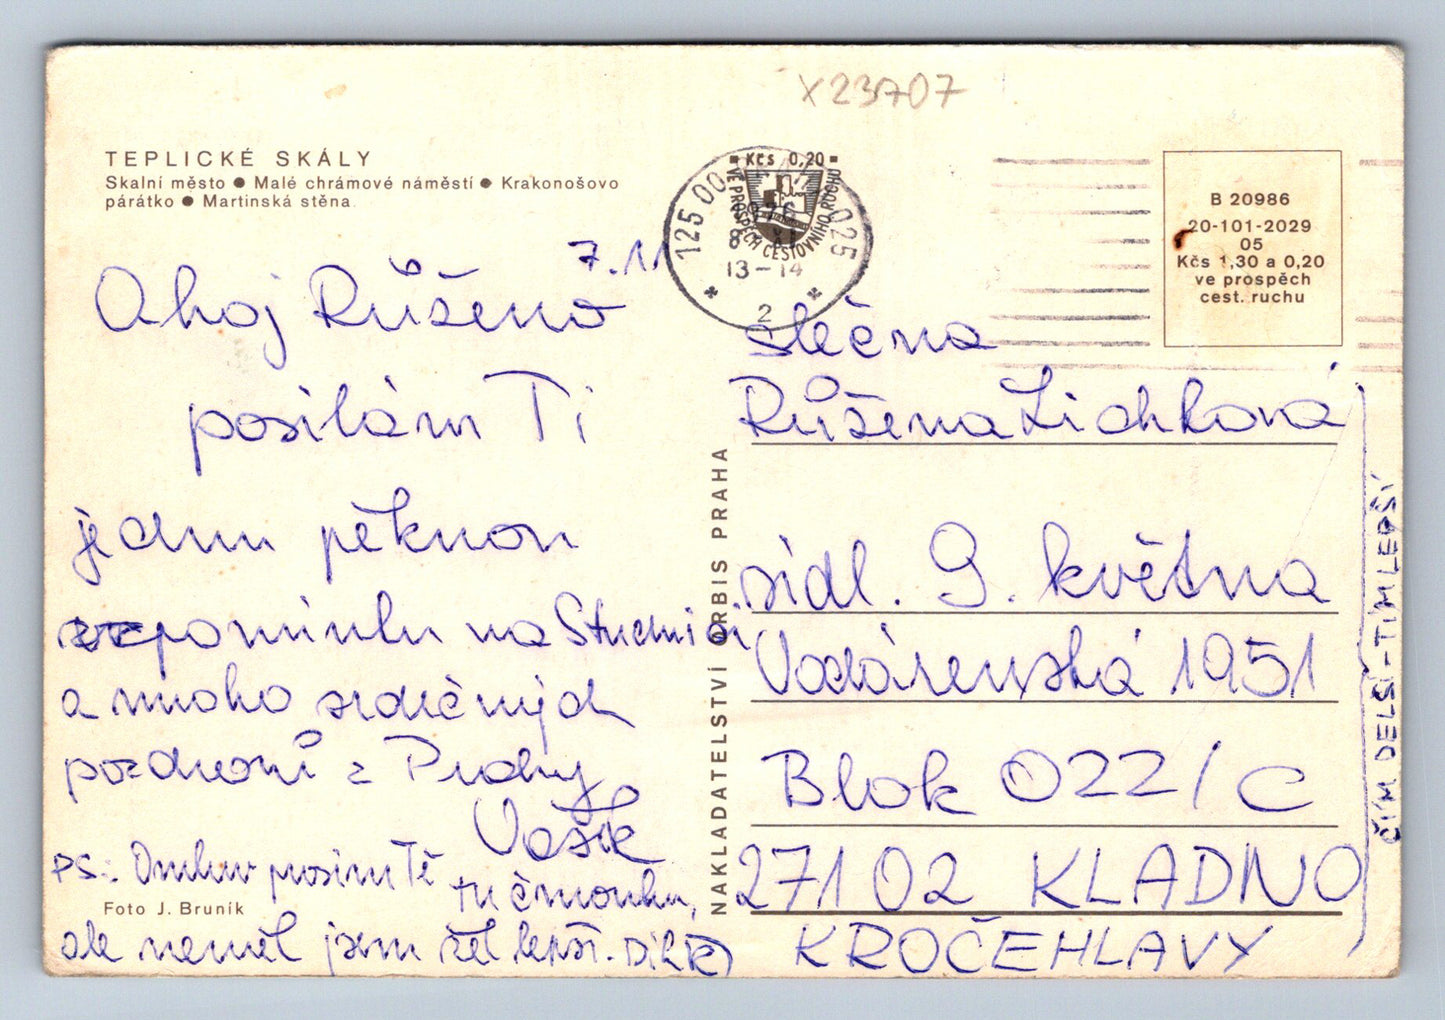 X23707
TEPLICKÉ SKÁLY
Skalní město ● Malé chrámové náměstí ● Krakonošovo
párátko ● Martinská stěna
7.11
Ahoj Růženo
posílám Ti
jednu pěknou
vzpomínku na
a mnoho srdečných
pozdravů z Prahy
Vašík
PS: Omluv prosím Tě
tu čmouhu,
Foto J. Bruník
ale neměl jsem lepší.
NAKLADATELSTVÍ ORBIS PRAHA
Kčs 0,20
VE PROSPĚCH CESTOVNÍHO RUCHU
125 00 025
13-14
2
B 20986
20-101-2029
05
Kčs 1,30 a 0,20
ve prospěch
cest. ruchu
slečna
Růžena Lichková
sídl. 9. května
Vodárenská 1951
Blok 022/C
27102 KLADNO
KROČEHLAVY
ČÍM DELŠÍ-TÍM LEPŠÍ